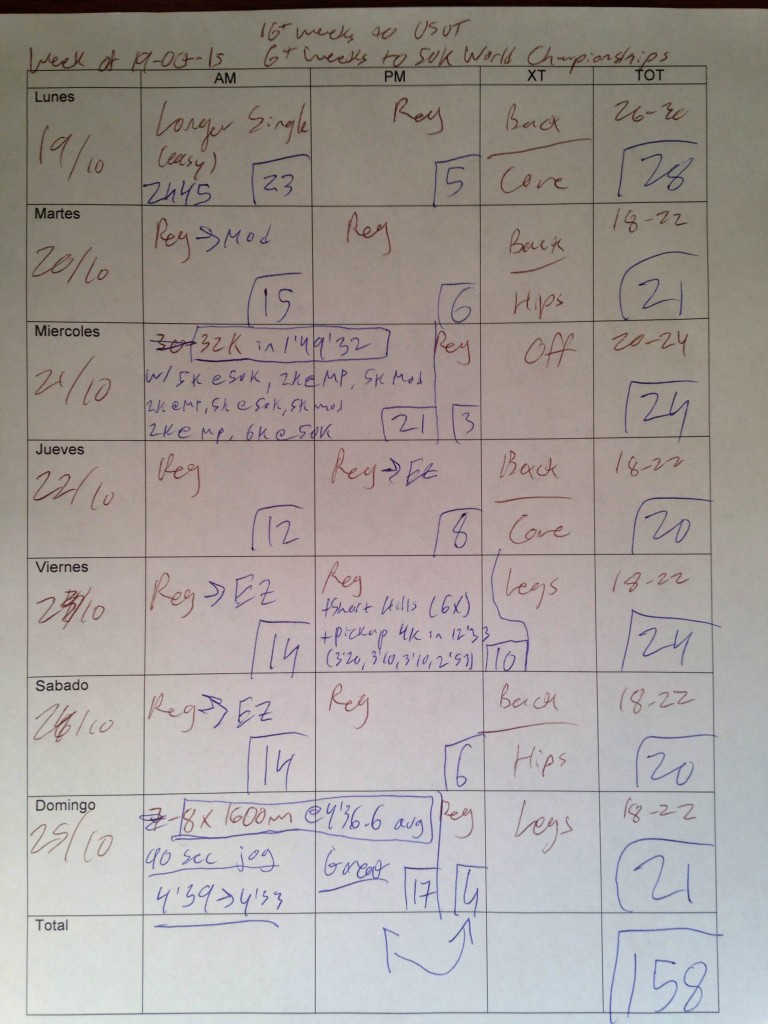 16+ weeks to USOT
Week of 19-Oct-15 6+ weeks to 50K World Championships
AM PM XT TOT
Lunes
19/10
Longer Single
(easy)
2h45 23
Reg
5
Back
Core
26-30
28
Martes
20/10
Reg → Mod
15
Reg
6
Back
Hips
18-22
21
Miercoles
21/10
30 32K in 1'49'32
w/ 5K @ 50K, 2K @ MP, 5K Mod
2K @ MP, 5K @ 50K, 5K mod
2K @ MP, 6K @ 50K 21
Reg
3
Off
20-24
24
Jueves
22/10
Reg
12
Reg → EZ
8
Back
Core
18-22
20
Viernes
23/10
Reg → EZ
14
Reg
+Short Hills (6x)
+pickup 4K in 12'33
(3'20, 3'10, 3'10, 2'53) 10
Legs
18-22
24
Sabado
24/10
Reg → EZ
14
Reg
6
Back
Hips
18-22
20
Domingo
25/10
7-8 x 1600m @ 4'36.6 avg
90 sec jog Great
4'39 → 4'33 17
Reg
4
Legs
18-22
21
Total
158